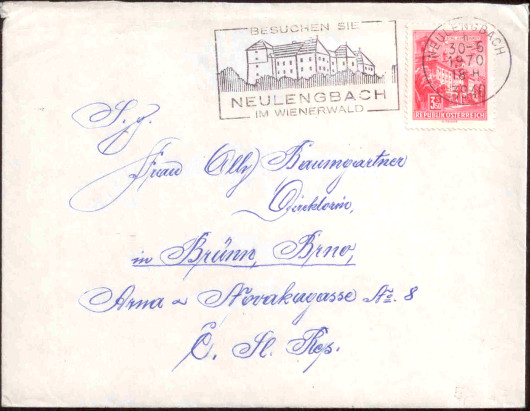 BESUCHEN SIE
NEULENGBACH
IM WIENERWALD
NEULENGBACH
30-5
1970
18 H
3040
3.50
REPUBLIK ÖSTERREICH
S. g.
Frau Olly Baumgartner
Direktorin,
in Brünn, Brno,
Arna Novakugasse No. 8
Č. Sl. Rep.